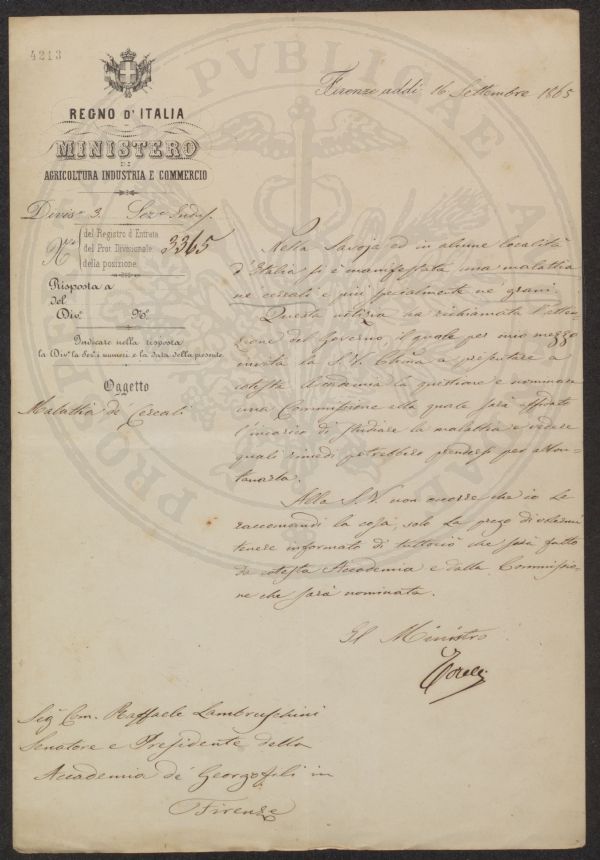 4213
Firenze addi 16 Settembre 1865
REGNO D'ITALIA
MINISTERO
DI
AGRICOLTURA INDUSTRIA E COMMERCIO
Divisne 3. Seze Indust.
del Registro d'Entrata
Nro del Prot. Divisionale 3365
della posizione
Risposta a
del
Divne No.
Indicare nella risposta
la Divne la Sezne i numeri e la data della presente
Oggetto
Malattia de' Cereali
Nella Savoja ed in alcune località
d'Italia si è manifestata una malattia
ne' cereali e più specialmente ne' grani.
Questa notizia ha richiamata l'atten-
zione del Governo, il quale per mio mezzo
invita la S. V. Illma a presentare a
cotesta Accademia la quistione e nominare
una Commissione alla quale sarà affidato
l'incarico di studiare la malattia e vedere
quali rimedi potrebbero prendersi per allon-
tanarla.
Alla S. V. non occorre che io Le
raccomandi la cosa, solo La prego di volermi
tenere informato di tuttociò che sarà fatto
da cotesta Accademia e dalla Commissio-
ne che sarà nominata.
Il Ministro
Torelli
Sigr Com. Raffaele Lambruschini
Senatore e Presidente della
Accademia de' Georgofili in
Firenze
PROSPERITATI PVBLICAE AVGENDAE